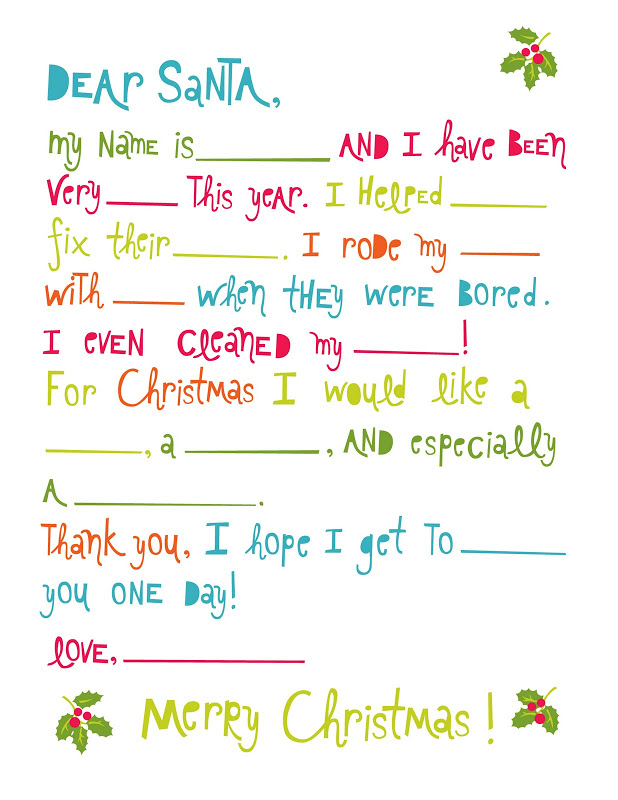 DEAr SaNTA,
my Name is__________ AND I have BEEN
Very______ This yeAr. I HeLpeD________
fix their_________. I roDe my _______
with ______ when tHEy werE BoreD.
I evEN cLeaNED my _________!
For Christmas I would like a
________, a ___________, AND especially
A _______________.
Thank you, I hope I get To_________
you oNE Day!
LOVE,_______________
Merry Christmas!